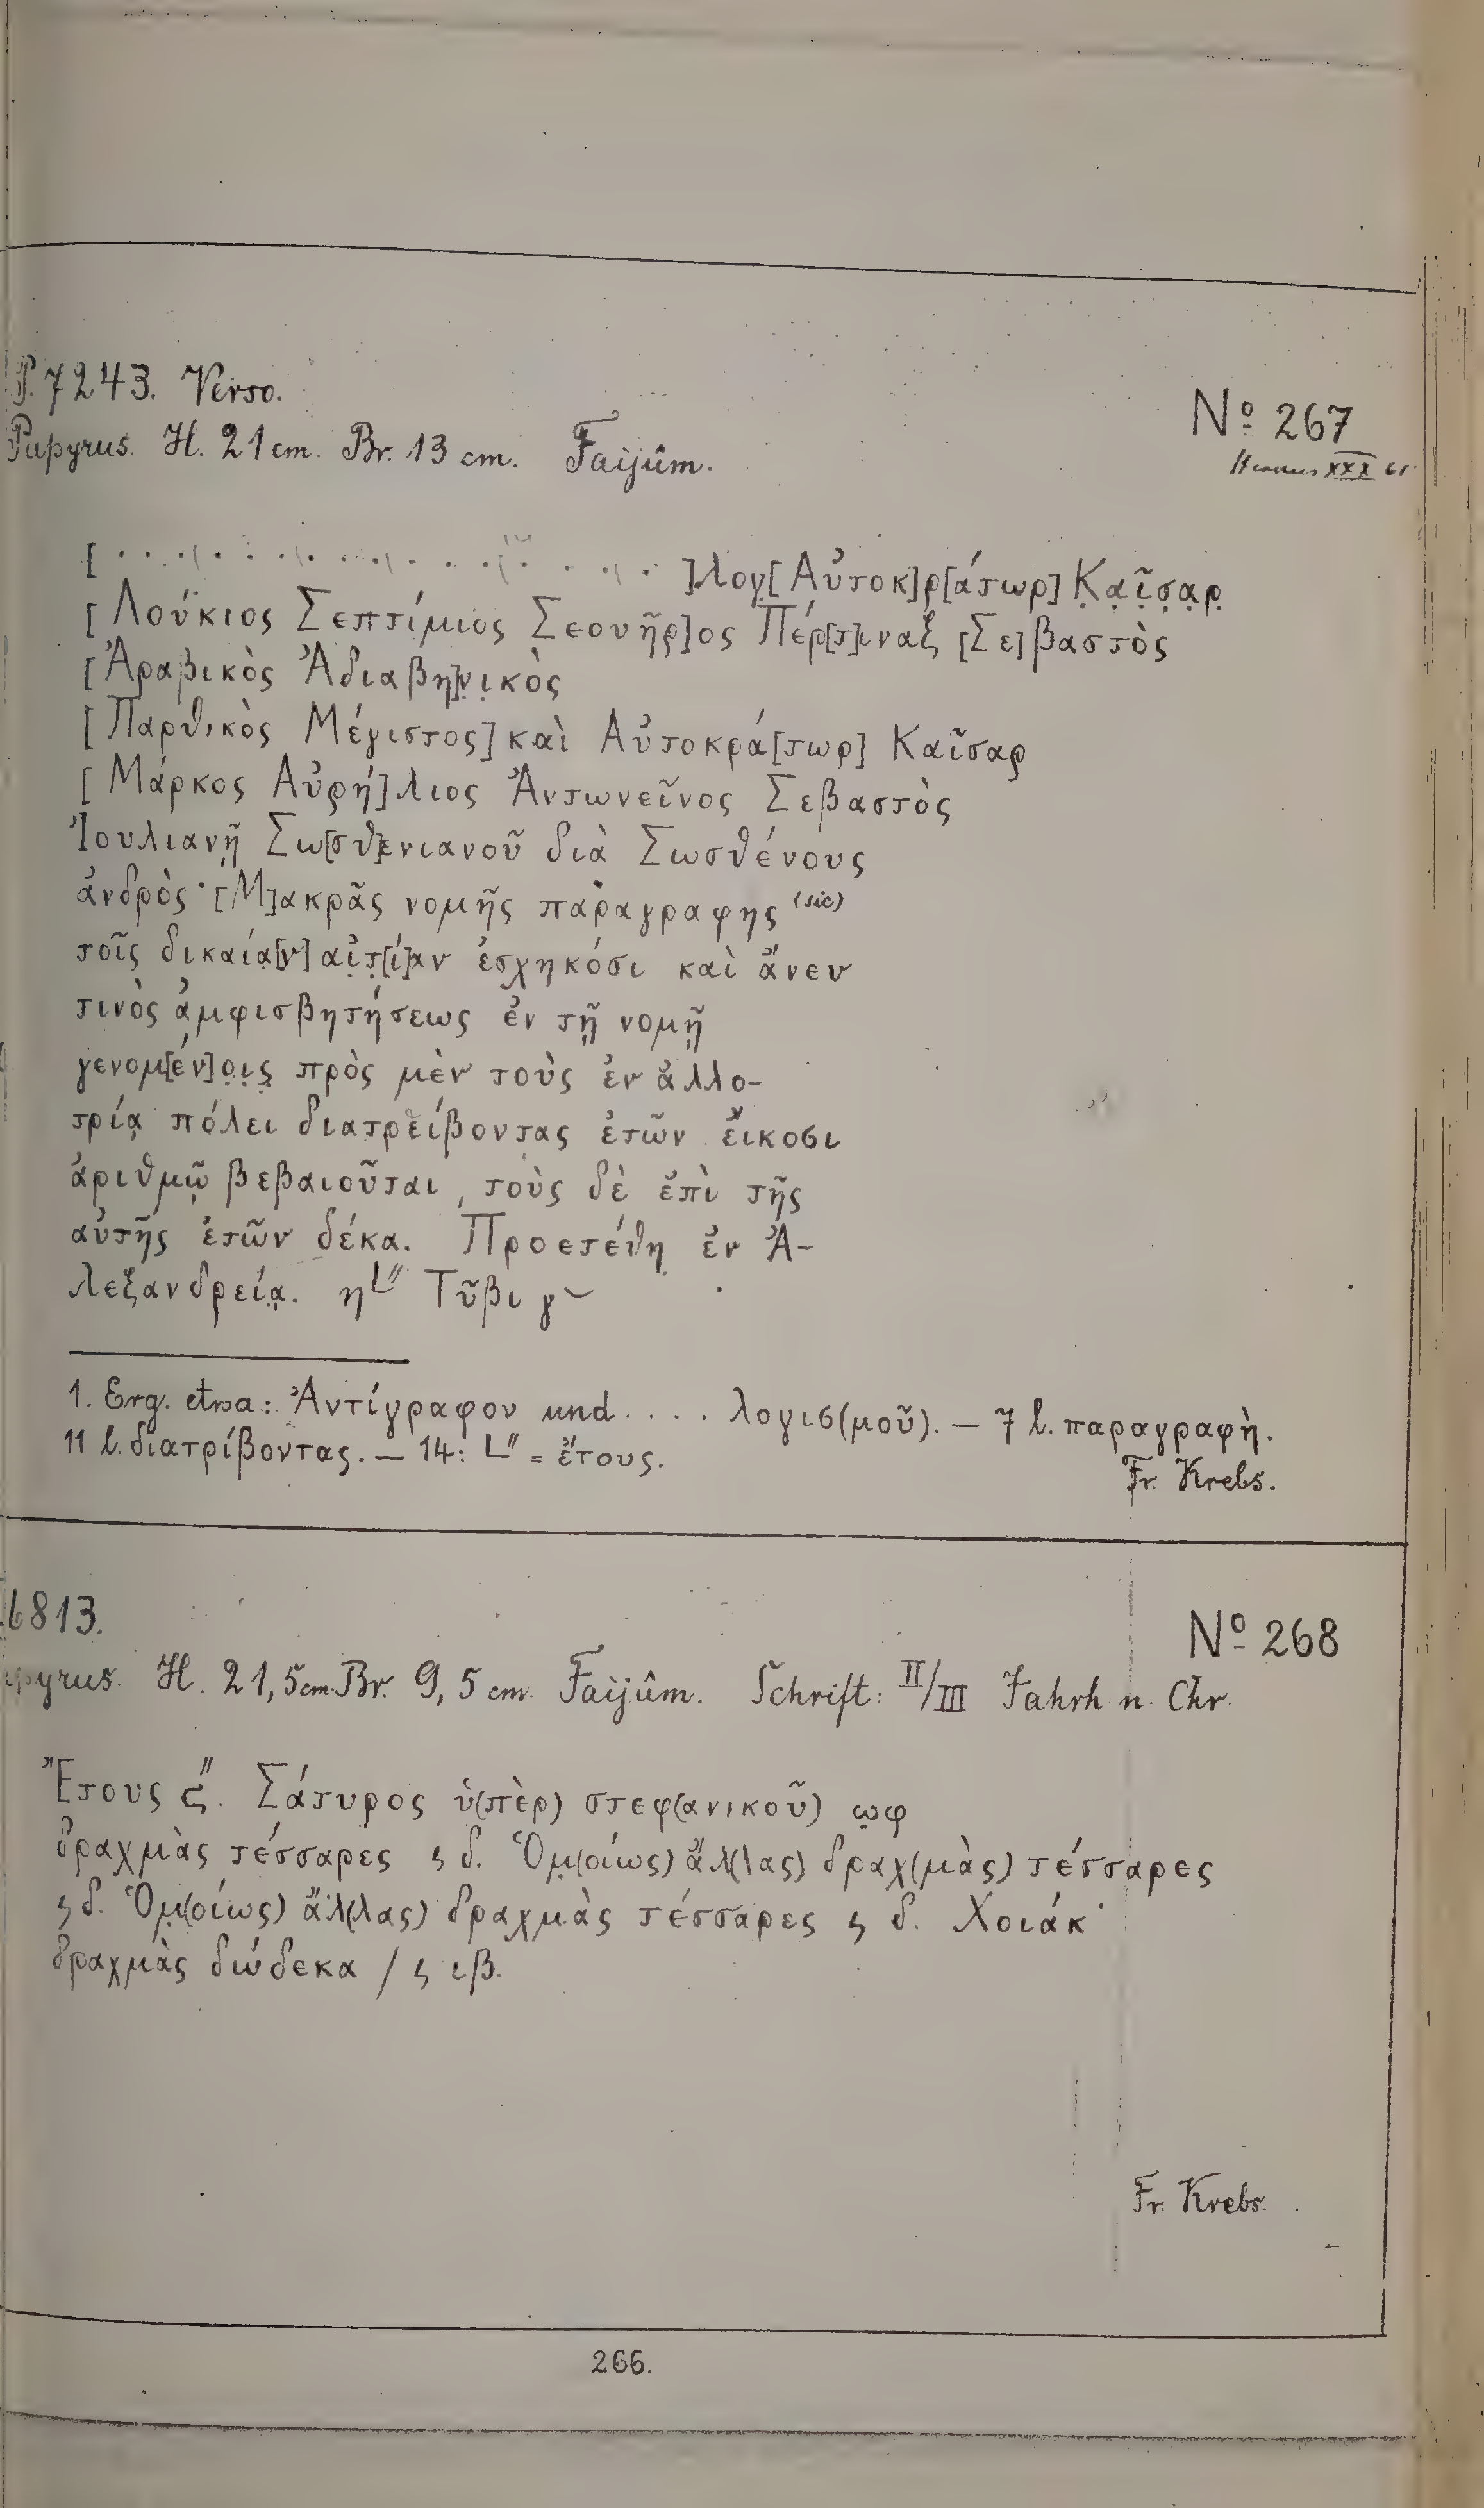 P. 7243. Verso.
Papyrus. H. 21 cm. Br. 13 cm. Faijûm.
Nº 267
Hermes XXX 61
[ . . . . . . . . . . . . . ]λογ̣[ Αὐτοκ]ρ̣[άτωρ] Κ̣α̣ῖ̣σ̣α̣ρ̣
[ Λούκιος Σεπτίμιος Σεουῆρ]ος Πέρ[τ]ιναξ [Σε]βαστὸς
[Ἀραβικὸς Ἀδιαβη]ν̣ι̣κὸς
[Παρθικὸς Μέγιστος] καὶ Αὐτοκρά[τωρ] Καῖσαρ
[Μάρκος Αὐρή]λιος Ἀντωνεῖνος Σεβαστὸς
Ἰουλιανῇ Σω[σθ]ενιανοῦ διὰ Σωσθένους
ἀνδρὸς· [Μ]ακρᾶς νομῆς παραγραφης (sic)
τοῖς δικαία̣[ν] αἰ̣τ̣[ί]αν ἐσχηκόσι καὶ ἄνευ
τινὸς ἀμφισβητήσεως ἐν τῇ νομῇ
γενομ[έν]ο̣ι̣ς̣ πρὸς μὲν τοὺς ἐν ἀλλο-
τρίᾳ πόλει διατρείβοντας ἐτῶν εἴκοσι
ἀριθμῷ βεβαιοῦται, τοὺς δὲ ἐπὶ τῆς
αὐτῆς ἐτῶν δέκα. Προετέθη ἐν Ἀ-
λεξανδρείᾳ. η L″ Τῦβι γ
1. Erg. etwa: Ἀντίγραφον und . . . . λογισ(μοῦ). — 7 l. παραγραφὴ.
11 l. διατρίβοντας. — 14: L″ = ἔτους.
Fr. Krebs.
6813.
Nº 268
pyrus. H. 21,5 cm. Br. 9,5 cm. Faijûm. Schrift: II/III Jahrh. n. Chr.
Ἔτους ϛ″. Σάτυρος ὑ(πὲρ) στεφ(ανικοῦ) ω̣φ
δραχμὰς τέσσαρες ϛ δ. Ὁμ̣(οίως) ἄλ(λας) δραχ(μὰς) τέσσαρες
ϛ δ. Ὁμ̣(οίως) ἄλ(λας) δραχμὰς τέσσαρες ϛ δ. Χοιάκ
δραχμὰς δώδεκα / ϛ ιβ.
Fr. Krebs.
266.